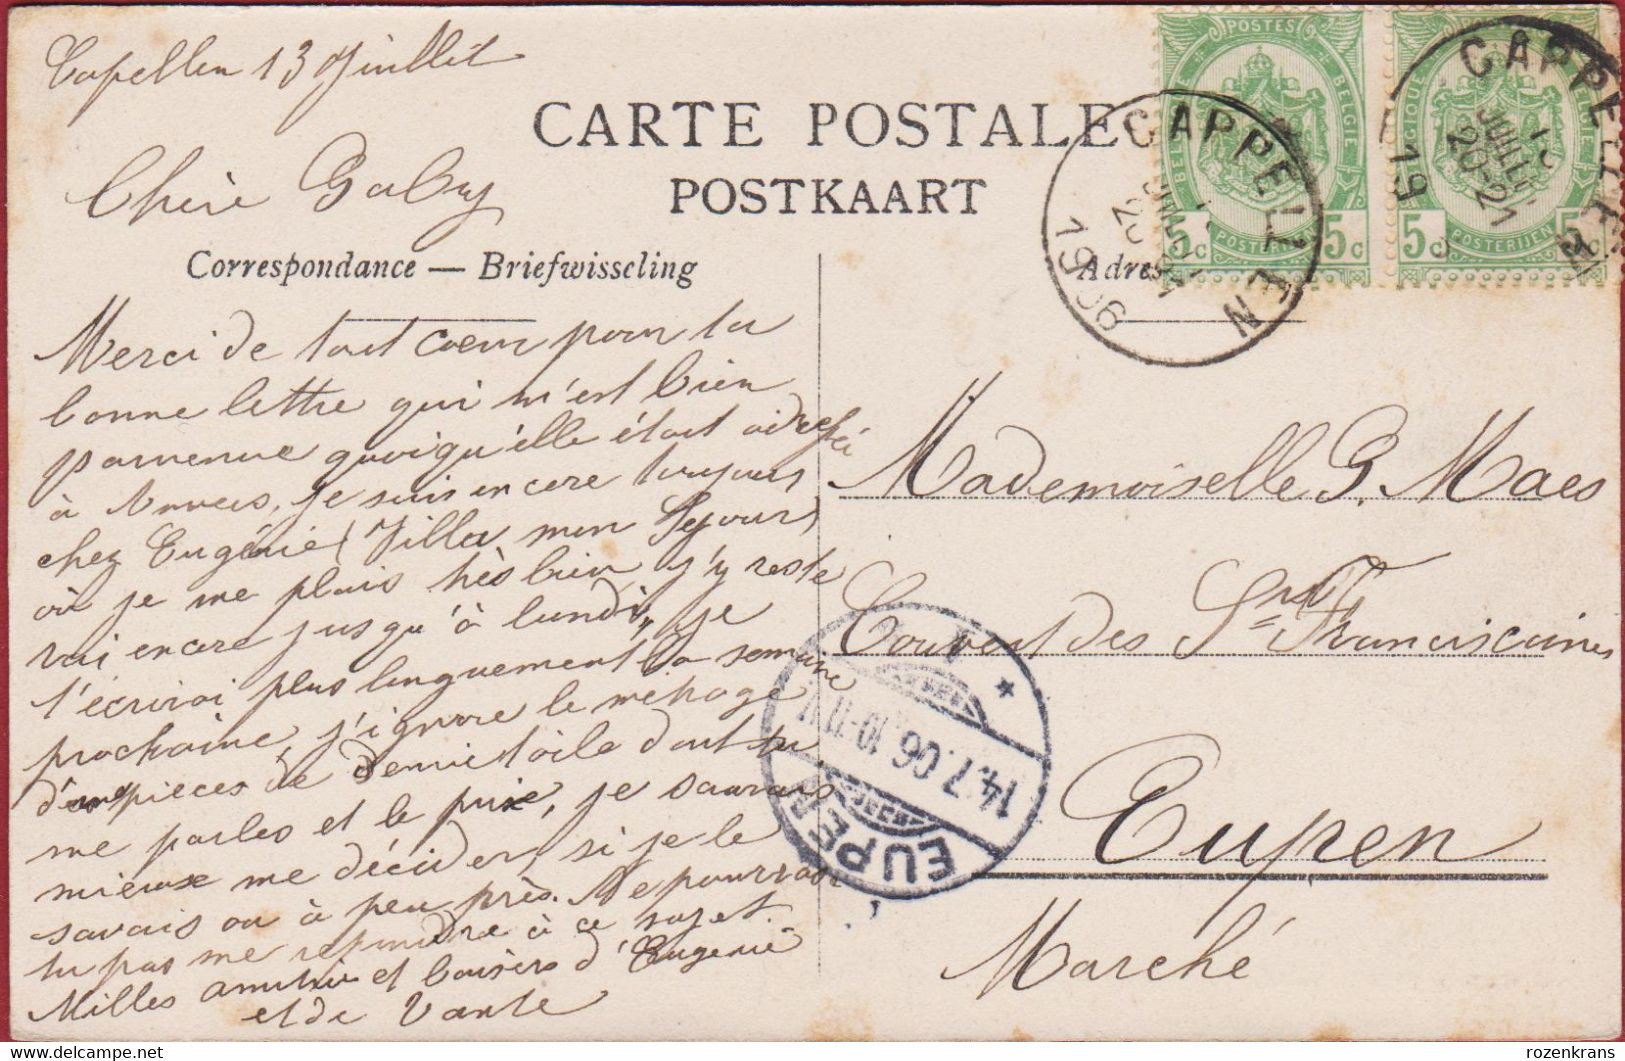 Capellen 13 Juillet
CARTE POSTALE
POSTKAART
Chère Gaby
Correspondance — Briefwisseling
Merci de tout coeur pour ta
bonne lettre qui m'est bien
parvenue quoiqu'elle était adressée
à Anvers, je suis encore toujours
chez Eugénie (Villa mon Séjour)
où je me plais très bien j'y reste
rai encore jusqu'à lundi, je
t'écrirai plus longuement la semaine
prochaine, j'ignore le métrage
pièces de demie toile dont tu
me parles et le prix, je saurais
mieux me décider, si je le
savais ou à peu près. Ne pourrais
tu pas me répondre à ce sujet.
Milles amitiés et baisers d'Eugénie
et de
POSTES
BELGIQUE
BELGIE
5c
POSTERIJEN
5c
POSTES
BELGIQUE
BELGIE
5c
POSTERIJEN
5c
CAPPELLEN
1906
CAPPELLEN
JUILL
20-21
19
Adres
Mademoiselle G. Maes
Couvent des Srs Franciscaines
Eupen
Marché
EUPEN
14.7.06. 10-11 V
rozenkrans